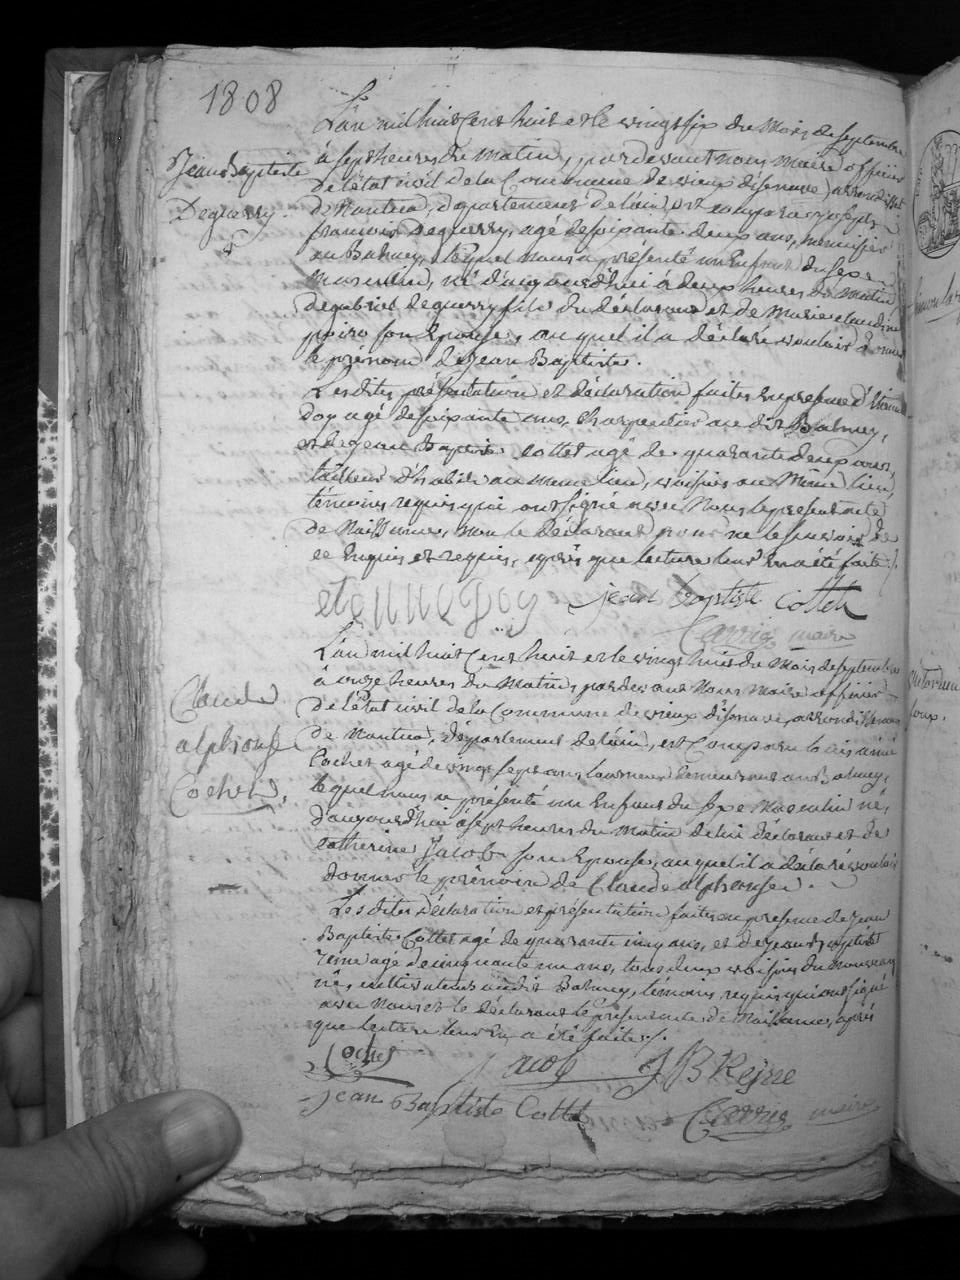 1808
Jean Baptiste
Deguerry.
L'an mil huit cent huit et le vingt six du mois de septembre
à sept heures du matin, pardevant nous maire officier
de l'état civil de la Commune de vieux d'isenave, arrondissmt
de Nantua, département de l'ain, est comparu joseph
francois Deguerry, agé de soixante deux ans, menuisier
au Balmey, lequel nous a présenté un Enfant du sexe
Masculin, né d'aujourd'hui à deux heures du matin
de gabriel deguerry fils du déclarant et de Marie claudine
son Epouse, au quel il a déclaré vouloir donner
le prénom de Jean Baptiste.
Les dites présentation et déclaration faites En presence d'Etienne
Doy agé de soixante ans, Charpentier au dit Balmey,
et de jean Baptiste Cottet agé de quarante deux ans,
tailleur d'habits au meme lieu, voisins au même lieu,
témoins requis qui ont signé avec Nous le present acte
de Naissance, non le Déclarant pour ne le savoir de
ce Enquis et requis, après que lecture leur En a été faite ./.
etienne Doy jean baptiste Cottet
Carrig maire
Claude
alphonse
Cochet,
L'an mil huit Cent huit et le vingt huit du Mois de septembre
à onze heures du Matin, pardevant Nous Maire officier
de l'état civil de la Commune de vieux d'isenave, arrondissement
de Nantua, département de l'ain, est Comparu louis aimé
Cochet agé de vingt sept ans tourneur demeurant au Balmey,
lequel nous a présenté un Enfant du sexe Masculin né,
d'aujourd'hui à sept heures du matin de lui déclarant et de
catherine Jacob son Epouse, au quel il a déclaré vouloir
donner le prénom de Claude alphonse.
Les dites déclaration et présentation faites en presence de jean
Baptiste Cottet agé de quarante cinq ans, et de Jean Baptiste
Reine agé de cinquante un ans, tous deux voisins du Nouveau
né, cultivateurs au dit Balmey, témoins requis qui ont signé
avec Nous et le déclarant le present acte de Naissance, après
que lecture leur En a été faite ./.
Cochet Jacob J B Rejne
jean Baptiste Cottet Carrig maire